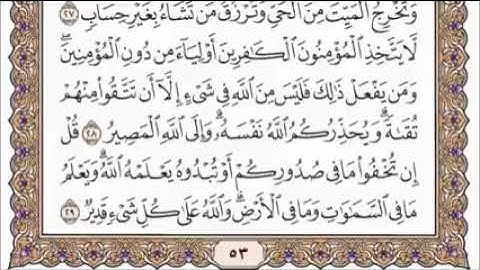 وَتُخْرِجُ الْمَيِّتَ مِنَ الْحَيِّ وَتَرْزُقُ مَن تَشَاءُ بِغَيْرِ حِسَابٍ ٢٧
لَّا يَتَّخِذِ الْمُؤْمِنُونَ الْكَافِرِينَ أَوْلِيَاءَ مِن دُونِ الْمُؤْمِنِينَ ۖ
وَمَن يَفْعَلْ ذَٰلِكَ فَلَيْسَ مِنَ اللَّهِ فِي شَيْءٍ إِلَّا أَن تَتَّقُوا مِنْهُمْ
تُقَاةً ۗ وَيُحَذِّرُكُمُ اللَّهُ نَفْسَهُ ۗ وَإِلَى اللَّهِ الْمَصِيرُ ٢٨ قُلْ
إِن تُخْفُوا مَا فِي صُدُورِكُمْ أَوْ تُبْدُوهُ يَعْلَمْهُ اللَّهُ ۗ وَيَعْلَمُ
مَا فِي السَّمَاوَاتِ وَمَا فِي الْأَرْضِ ۗ وَاللَّهُ عَلَىٰ كُلِّ شَيْءٍ قَدِيرٌ ٢٩
٥٣